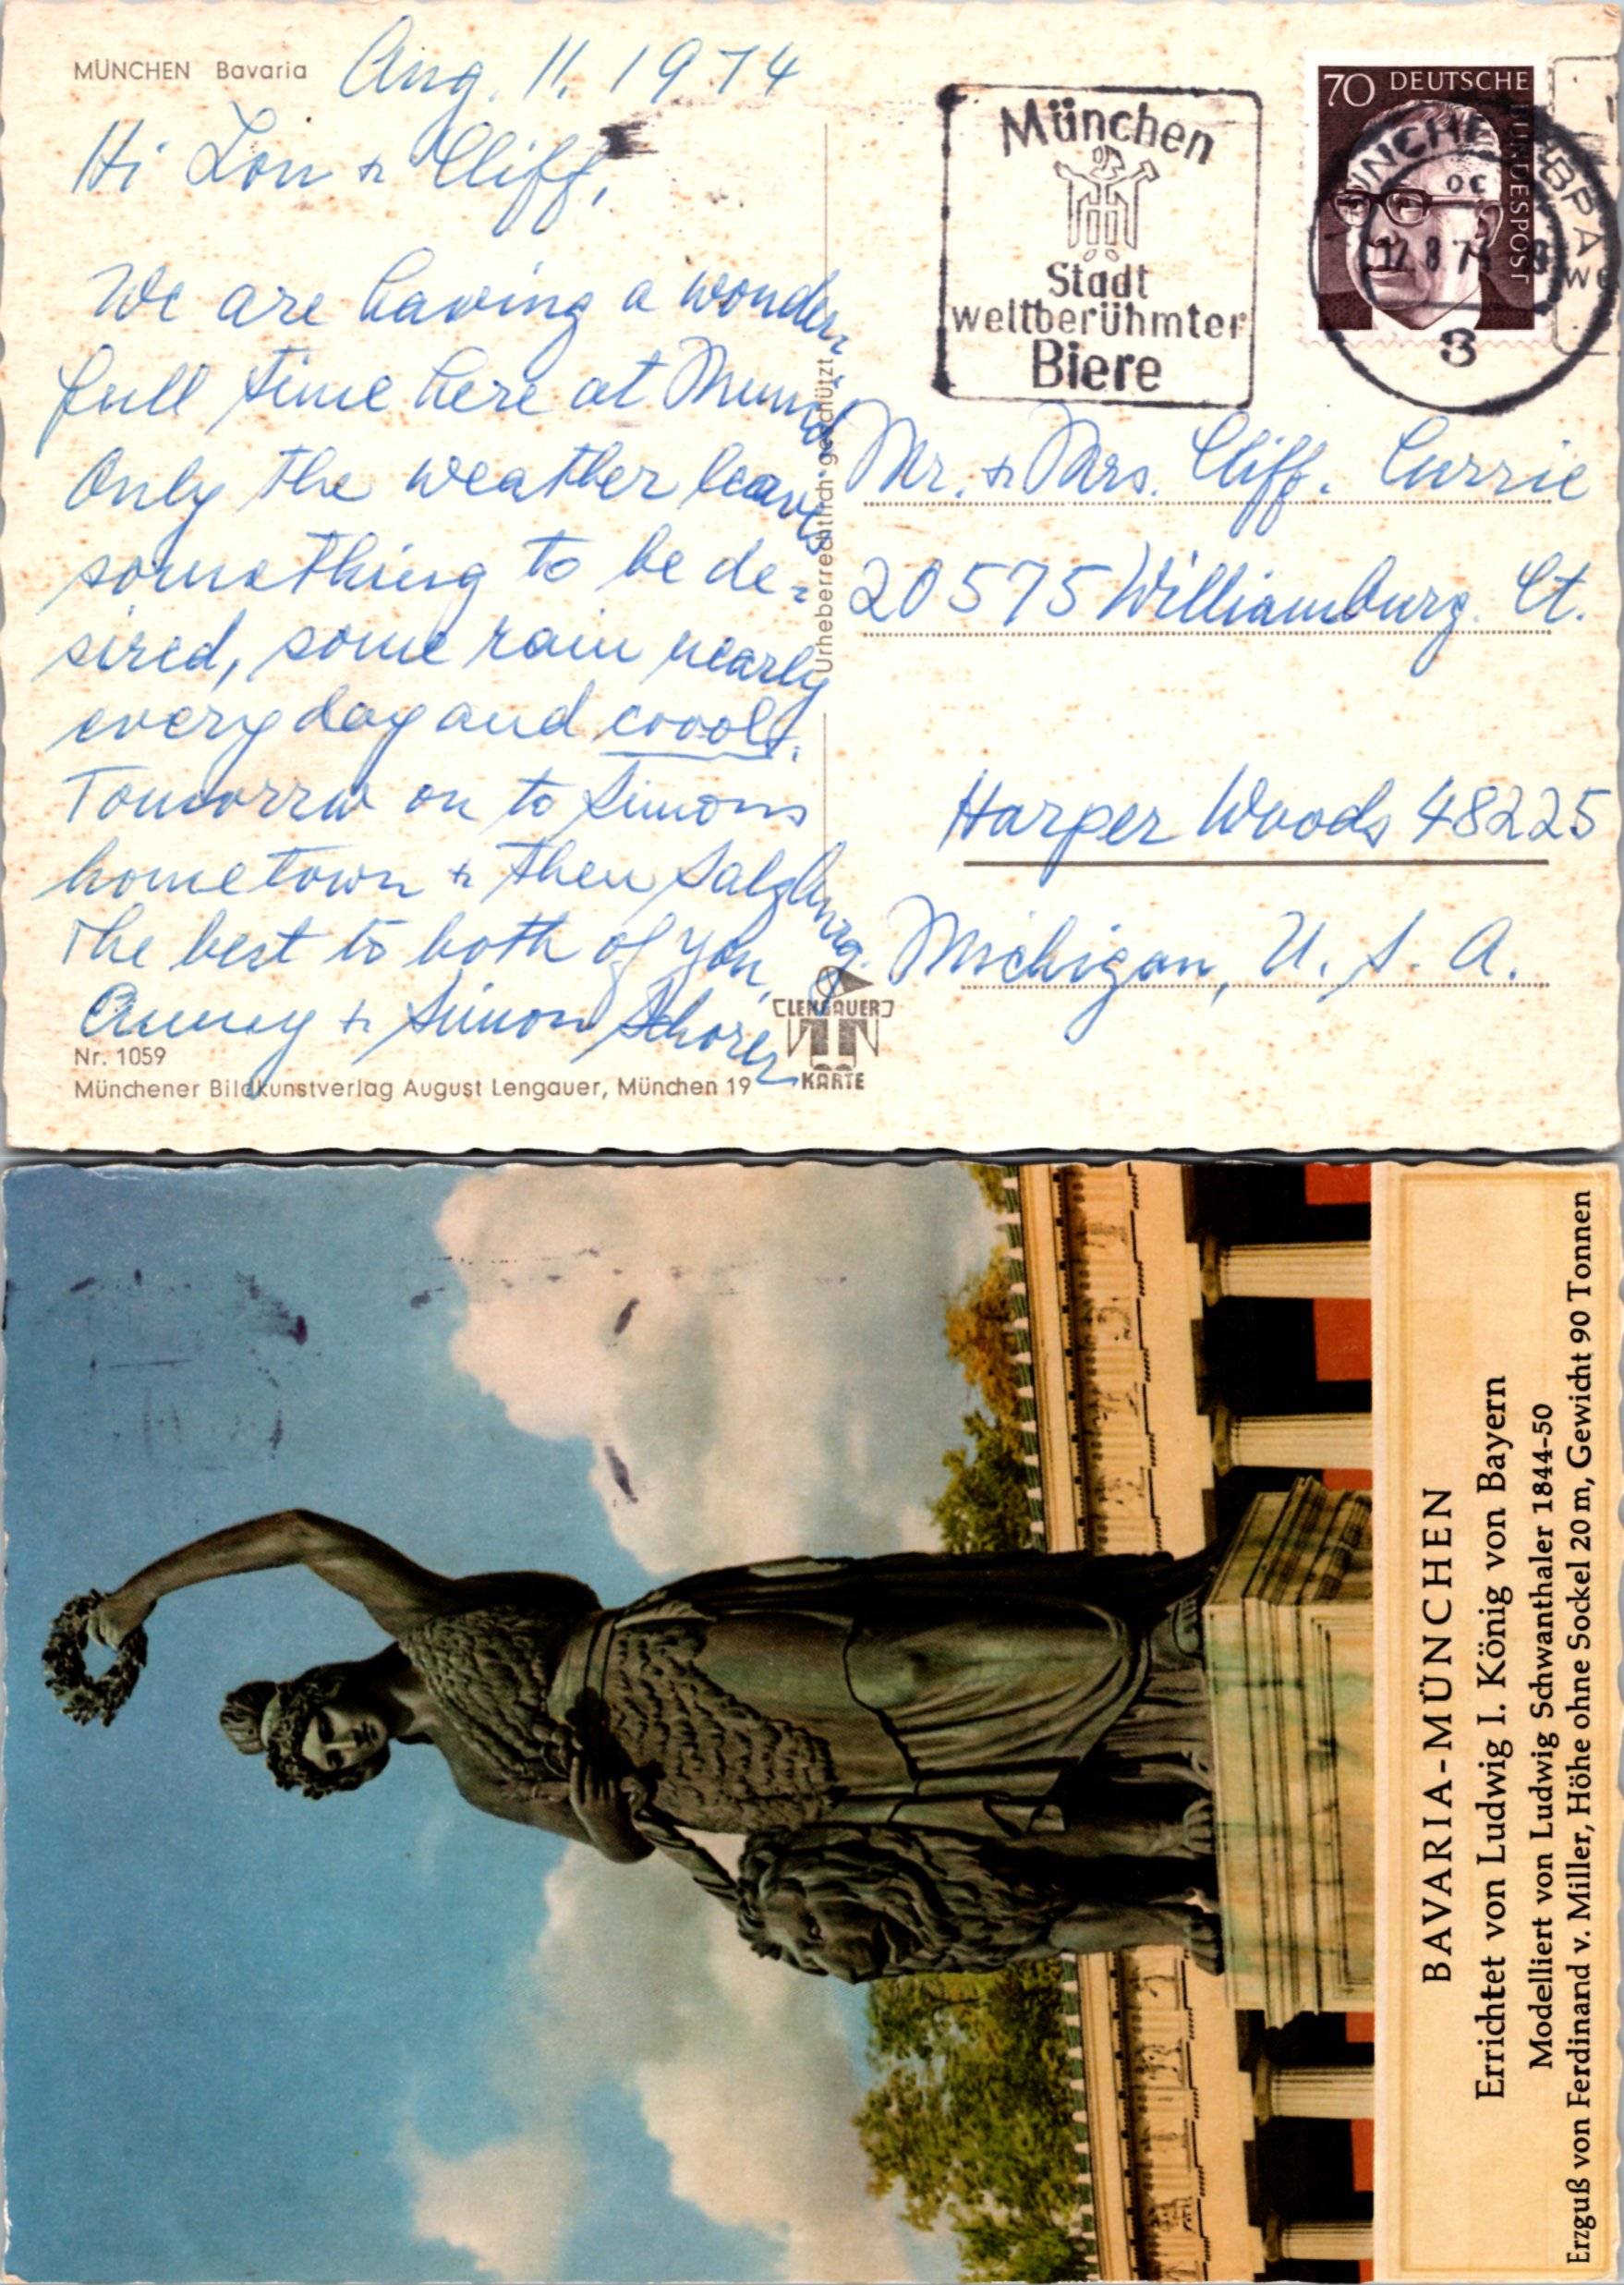 MÜNCHEN Bavaria
Aug. 11. 1974
Hi Lou + Cliff,
We are having a wonder-
full time here at Munich
Only the weather leaves
something to be de-
sired, some rain nearly
every day and coool!.
Tomorrow on to Simons
hometown + then Salzburg.
The best to both of you,
Anney + Simon Schorer
Nr. 1059
Münchener Bildkunstverlag August Lengauer, München 19
Urheberrechtlich geschützt
LENGAUER
KARTE
München
Stadt
weltberühmter
Biere
70 DEUTSCHE
BUNDESPOST
MÜNCHEN BPA
oc
12.8.74
3
Mr. + Mrs. Cliff. Currie
20575 Williamburg. Ct.
Harper Woods 48225
Michigan, U. S. A.
BAVARIA-MÜNCHEN
Errichtet von Ludwig I. König von Bayern
Modelliert von Ludwig Schwanthaler 1844-50
Erzguß von Ferdinand v. Miller, Höhe ohne Sockel 20 m, Gewicht 90 Tonnen